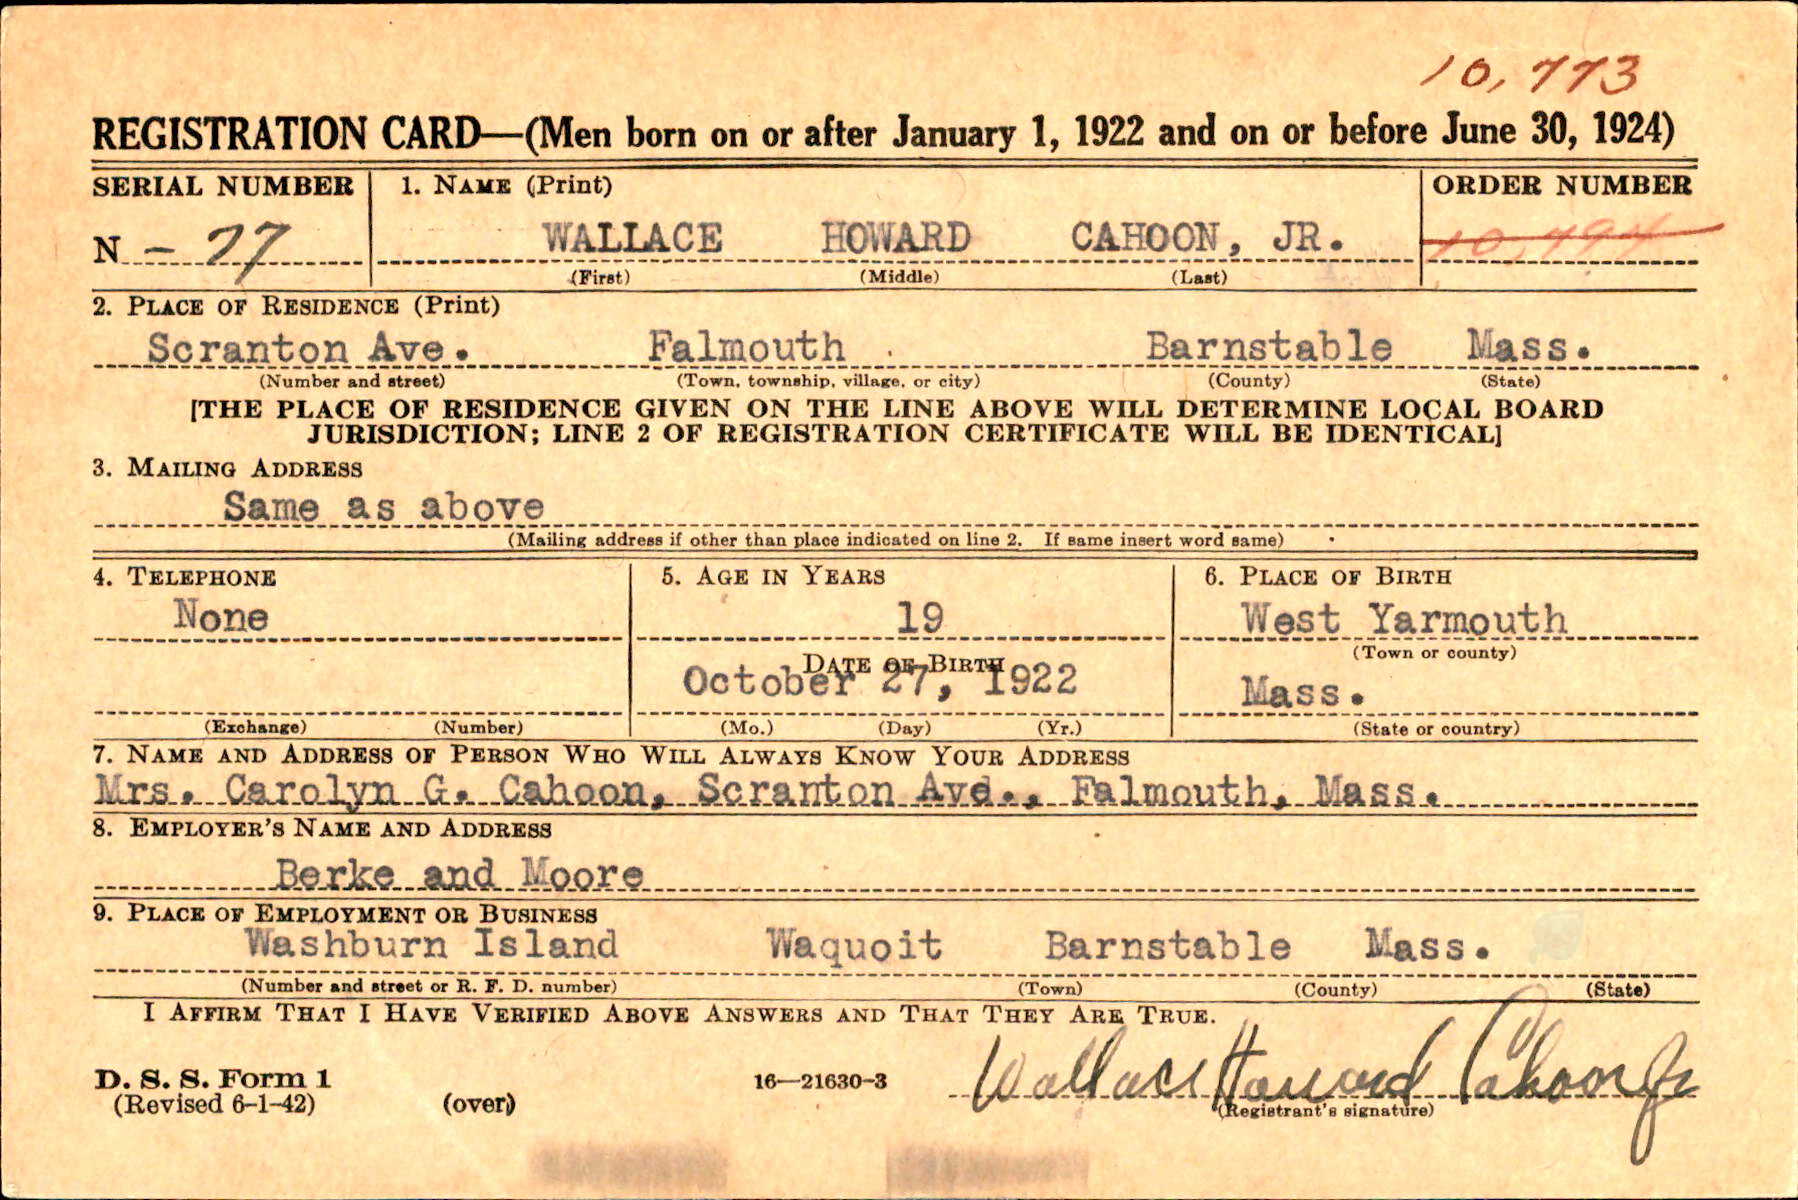 10,773
REGISTRATION CARD—(Men born on or after January 1, 1922 and on or before June 30, 1924)
SERIAL NUMBER 1. NAME (Print) ORDER NUMBER
N - 77 WALLACE HOWARD CAHOON, JR. 10,794
(First) (Middle) (Last)
2. PLACE OF RESIDENCE (Print)
Scranton Ave. Falmouth Barnstable Mass.
(Number and street) (Town, township, village, or city) (County) (State)
[THE PLACE OF RESIDENCE GIVEN ON THE LINE ABOVE WILL DETERMINE LOCAL BOARD
JURISDICTION; LINE 2 OF REGISTRATION CERTIFICATE WILL BE IDENTICAL]
3. MAILING ADDRESS
Same as above
(Mailing address if other than place indicated on line 2. If same insert word same)
4. TELEPHONE 5. AGE IN YEARS 6. PLACE OF BIRTH
None 19 West Yarmouth
(Town or county)
DATE OF BIRTH
October 27, 1922 Mass.
(Exchange) (Number) (Mo.) (Day) (Yr.) (State or country)
7. NAME AND ADDRESS OF PERSON WHO WILL ALWAYS KNOW YOUR ADDRESS
Mrs. Carolyn G. Cahoon, Scranton Ave., Falmouth, Mass.
8. EMPLOYER'S NAME AND ADDRESS
Berke and Moore
9. PLACE OF EMPLOYMENT OR BUSINESS
Washburn Island Waquoit Barnstable Mass.
(Number and street or R. F. D. number) (Town) (County) (State)
I AFFIRM THAT I HAVE VERIFIED ABOVE ANSWERS AND THAT THEY ARE TRUE.
D. S. S. Form 1 16—21630-3 Wallace Howard Cahoon Jr
(Revised 6-1-42) (over) (Registrant's signature)